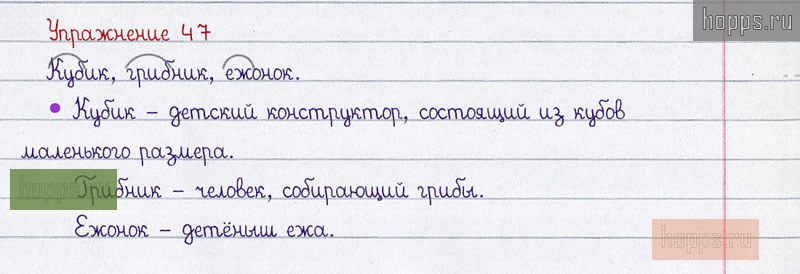 hopps.ru
Упражнение 47
Кубик, грибник, ежонок.
• Кубик – детский конструктор, состоящий из кубов
маленького размера.
hopps Грибник – человек, собирающий грибы.
Ежонок – детёныш ежа.
hopps.ru